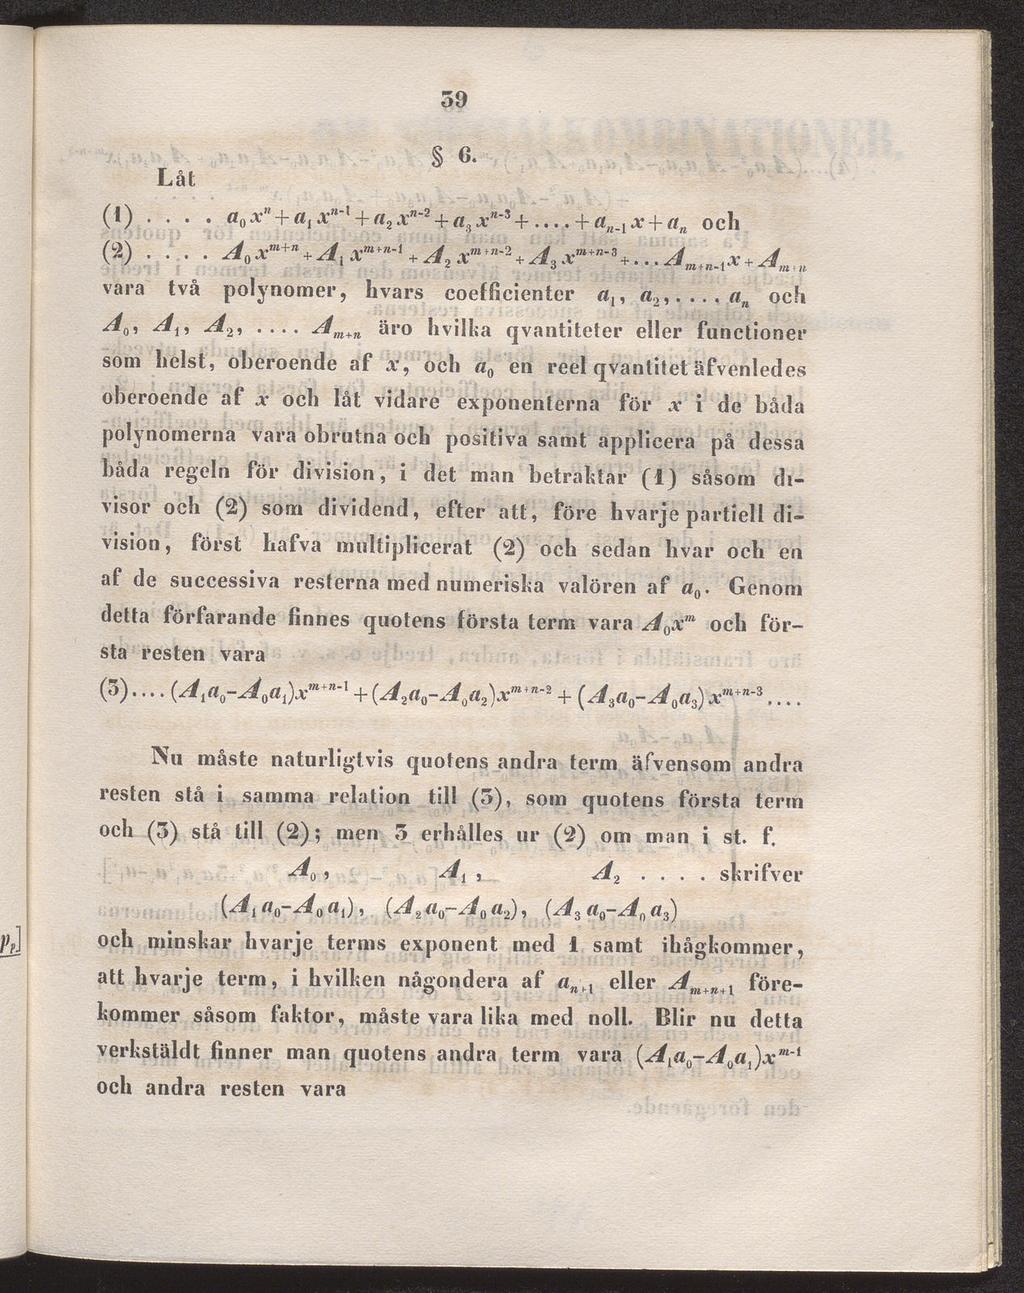 39
§ 6.
Låt
(1) . . . . a₀xⁿ + a₁xⁿ⁻¹ + a₂xⁿ⁻² + a₃xⁿ⁻³ + .... + aₙ₋₁x + aₙ och
(2) . . . . A₀xᵐ⁺ⁿ + A₁xᵐ⁺ⁿ⁻¹ + A₂xᵐ⁺ⁿ⁻² + A₃xᵐ⁺ⁿ⁻³ + ... Aₘ₊ₙ₋₁x + Aₘ₊ₙ
vara två polynomer, hvars coefficienter a₁, a₂, .... aₙ och
A₀, A₁, A₂, .... Aₘ₊ₙ äro hvilka qvantiteter eller functioner
som helst, oberoende af x, och a₀ en reel qvantitet äfvenledes
oberoende af x och låt vidare exponenterna för x i de båda
polynomerna vara obrutna och positiva samt applicera på dessa
båda regeln för division, i det man betraktar (1) såsom di-
visor och (2) som dividend, efter att, före hvarje partiell di-
vision, först hafva multiplicerat (2) och sedan hvar och en
af de successiva resterna med numeriska valören af a₀. Genom
detta förfarande finnes quotens första term vara A₀xᵐ och för-
sta resten vara
(3).... (A₁a₀-A₀a₁)xᵐ⁺ⁿ⁻¹ + (A₂a₀-A₀a₂)xᵐ⁺ⁿ⁻² + (A₃a₀-A₀a₃)xᵐ⁺ⁿ⁻³ ....
Nu måste naturligtvis quotens andra term äfvensom andra
resten stå i samma relation till (3), som quotens första term
och (3) stå till (2); men 3 erhålles ur (2) om man i st. f.
A₀, A₁, A₂ .... skrifver
(A₁a₀-A₀a₁), (A₂a₀-A₀a₂), (A₃a₀-A₀a₃)
och minskar hvarje terms exponent med 1 samt ihågkommer,
att hvarje term, i hvilken någondera af aₙ₊₁ eller Aₘ₊ₙ₊₁ före-
kommer såsom faktor, måste vara lika med noll. Blir nu detta
verkstäldt finner man quotens andra term vara (A₁a₀-A₀a₁)xᵐ⁻¹
och andra resten vara